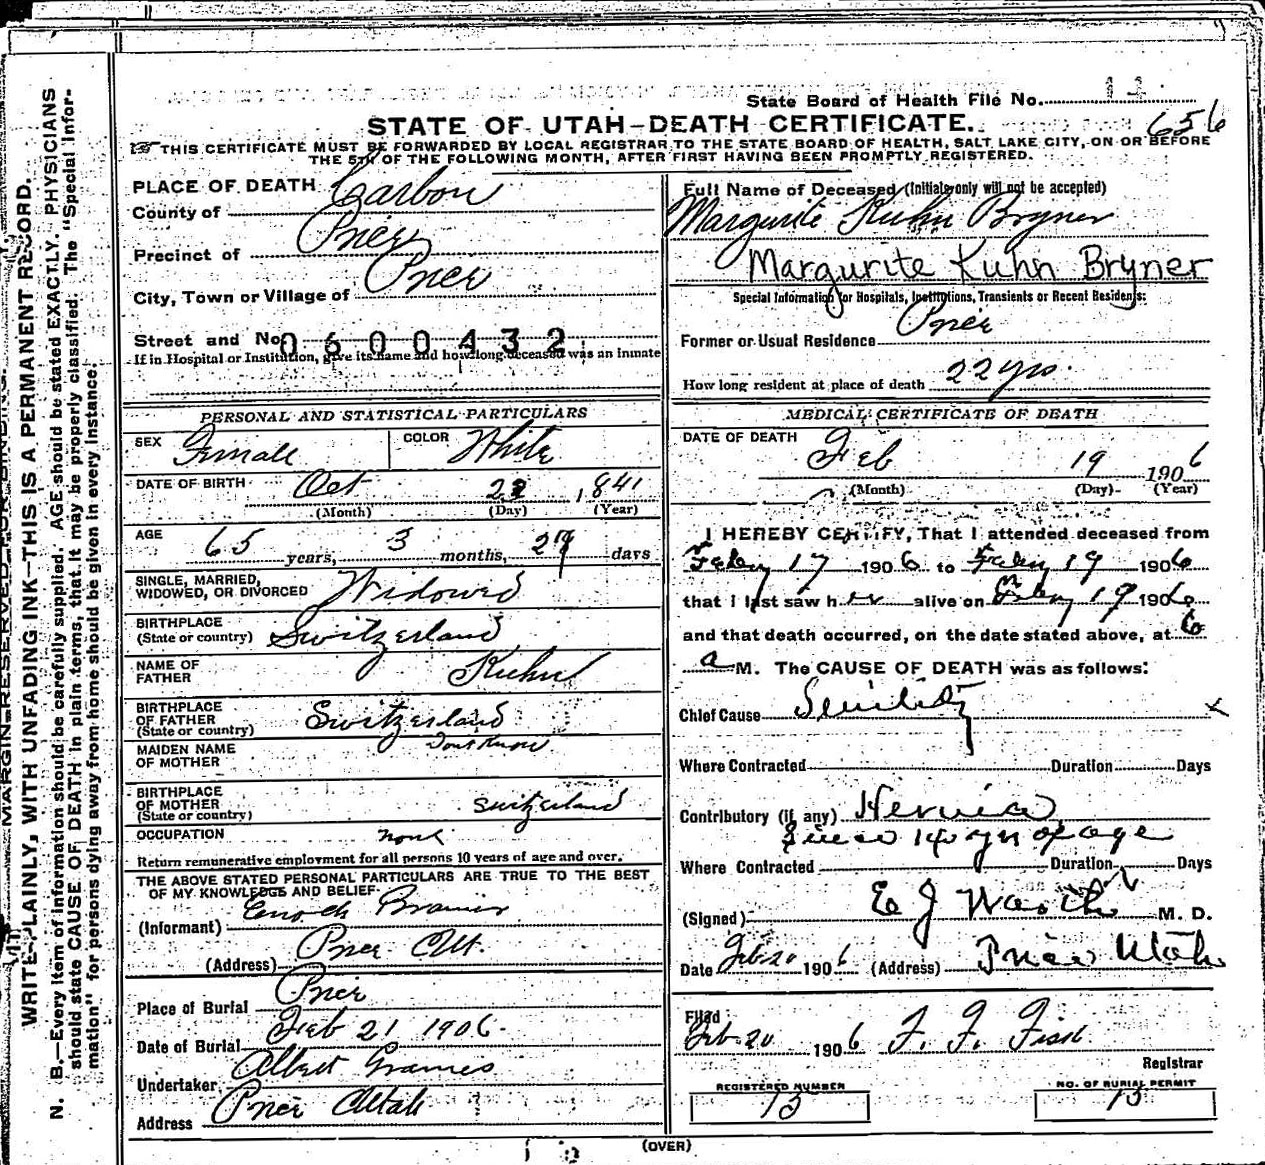 State Board of Health File No. 11
656
STATE OF UTAH—DEATH CERTIFICATE.
THIS CERTIFICATE MUST BE FORWARDED BY LOCAL REGISTRAR TO THE STATE BOARD OF HEALTH, SALT LAKE CITY, ON OR BEFORE
THE 5TH OF THE FOLLOWING MONTH, AFTER FIRST HAVING BEEN PROMPTLY REGISTERED.
PLACE OF DEATH
County of Carbon
Precinct of Price
City, Town or Village of Price
Street and No. 0600432
If in Hospital or Institution, give its name and how long deceased was an inmate
PERSONAL AND STATISTICAL PARTICULARS
SEX Female COLOR White
DATE OF BIRTH Oct 22, 1841
(Month) (Day) (Year)
AGE 65 years, 3 months, 29 days
SINGLE, MARRIED,
WIDOWED, OR DIVORCED Widowed
BIRTHPLACE
(State or country) Switzerland
NAME OF
FATHER Kuhn
BIRTHPLACE
OF FATHER
(State or country) Switzerland
MAIDEN NAME
OF MOTHER Dont Know
BIRTHPLACE
OF MOTHER
(State or country) Switzerland
OCCUPATION none
Return remunerative employment for all persons 10 years of age and over.
THE ABOVE STATED PERSONAL PARTICULARS ARE TRUE TO THE BEST
OF MY KNOWLEDGE AND BELIEF
(Informant) Enoch
(Address) Price Ut.
Place of Burial Price
Date of Burial Feb 21 1906.
Undertaker Albert Grames
Address Price Utah
Full Name of Deceased (Initials only will not be accepted)
Margurite Kuhn Bryner
Margurite Kuhn Bryner
Special Information for Hospitals, Institutions, Transients or Recent Residents:
Former or Usual Residence Price
How long resident at place of death 22 yrs.
MEDICAL CERTIFICATE OF DEATH
DATE OF DEATH Feb 19 1906
(Month) (Day) (Year)
I HEREBY CERTIFY, That I attended deceased from
Feby 17 1906 to Feby 19 1906
that I last saw her alive on Feby 19 1906
and that death occurred, on the date stated above, at 6
a M. The CAUSE OF DEATH was as follows:
Chief Cause Senility X
Where Contracted Duration Days
Contributory (if any) Hernia
Since 14 yrs of age
Where Contracted Duration Days
(Signed) E J M. D.
Date Feb 20 1906 (Address) Price Utah
Filed
Feb 20 1906 F. F. Fisk
Registrar
REGISTERED NUMBER
13
NO. OF BURIAL PERMIT
13
(OVER)
MARGIN RESERVED FOR BINDING.
WRITE PLAINLY, WITH UNFADING INK—THIS IS A PERMANENT RECORD.
N. B.—Every item of information should be carefully supplied. AGE should be stated EXACTLY. PHYSICIANS
should state CAUSE OF DEATH in plain terms, that it may be properly classified. The "Special Infor-
mation" for persons dying away from home should be given in every instance.